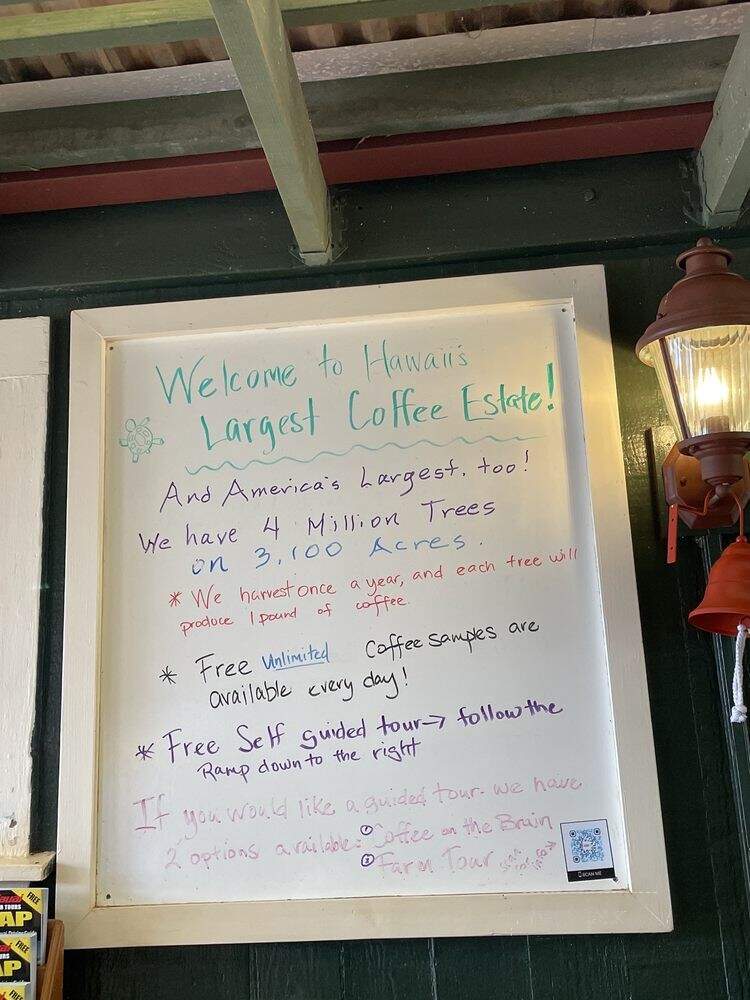 Welcome to Hawaii's
Largest Coffee Estate!
And America's Largest, too!
We have 4 Million Trees
on 3,100 Acres.
* We harvest once a year, and each tree will
produce 1 pound of coffee.
* Free Unlimited Coffee samples are
available every day!
* Free Self guided tour → follow the
Ramp down to the right
If you would like a guided tour. we have
2 options available: ① Coffee on the Brain
② Farm Tour
SCAN ME
FREE
TOURS
AP
FREE
AP
FREE